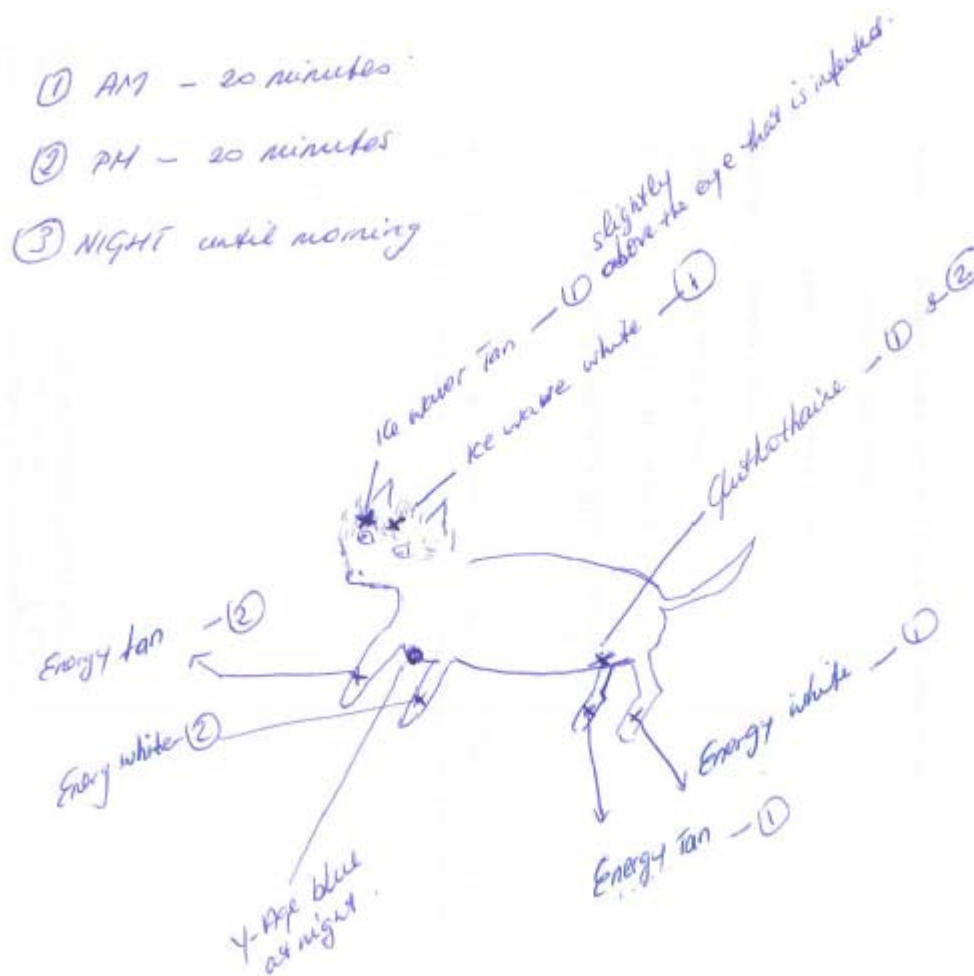 ① AM - 20 minutes.
② PM - 20 minutes
③ NIGHT until morning
Ice waver Tan - ① slightly
above the eye that is infected.
Ice wave white - ①
Gluthothaine - ① & ②
Energy tan - ②
Energy white - ②
Y-Age blue
at night.
Energy white - ①
Energy Tan - ①